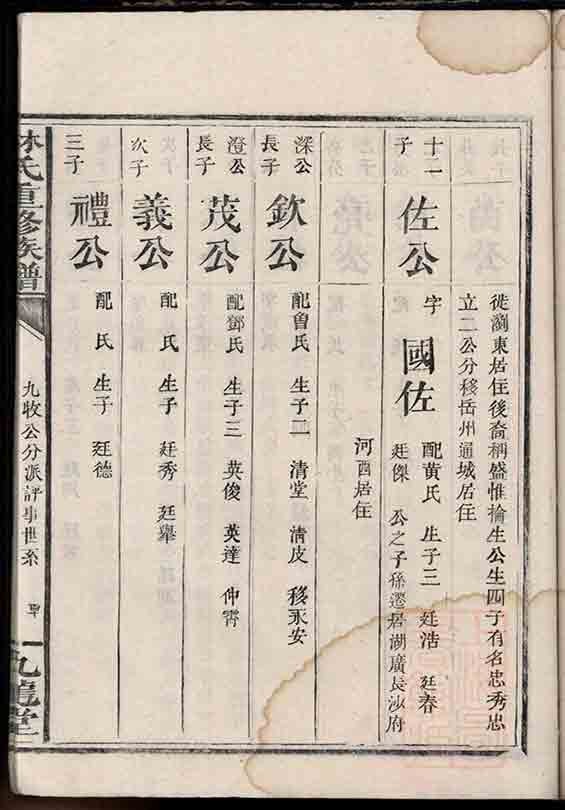 徙瀏東居住後裔稱盛惟掄生公生四子有名忠秀忠
立二公分移岳州通城居住
十二
子
佐公
字 國佐
配黄氏 生子三 廷浩 廷春
廷傑 公之子孫遷居湖廣長沙府
河西居住
深公
長子
欽公
配曾氏 生子二 清堂 清皮 移永安
澄公
長子
茂公
配鄧氏 生子三 英俊 英達 仲霄
次子
義公
配 氏 生子 廷秀 廷舉
三子
禮公
配 氏 生子 廷德
林氏重修族譜
九牧公分派評事世系
九龍堂